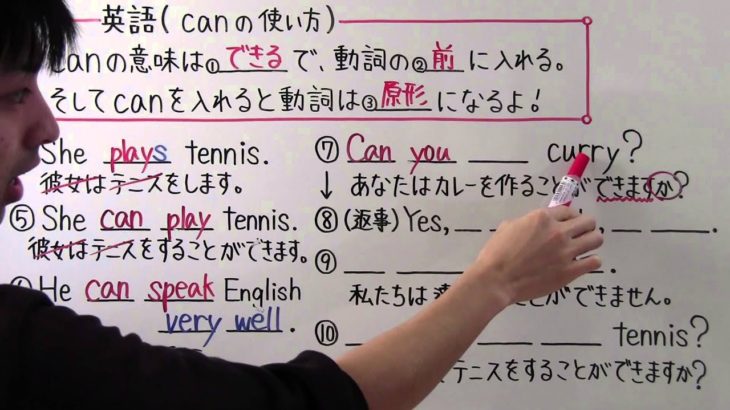 英語(canの使い方)
canの意味は①できるで、動詞の②前に入れる。
そしてcanを入れると動詞は③原形になるよ!
She plays tennis.
彼女はテニスをします。
⑤ She can play tennis.
彼女はテニスをすることができます。
He can speak English
very well.
⑦ Can you ____ curry?
↓ あなたはカレーを作ることができますか?
⑧ (返事) Yes, __ __, __ __.
⑨ __ __ .
私たちは ことができません。
⑩ __ __ __ __ tennis?
テニスをすることができますか?